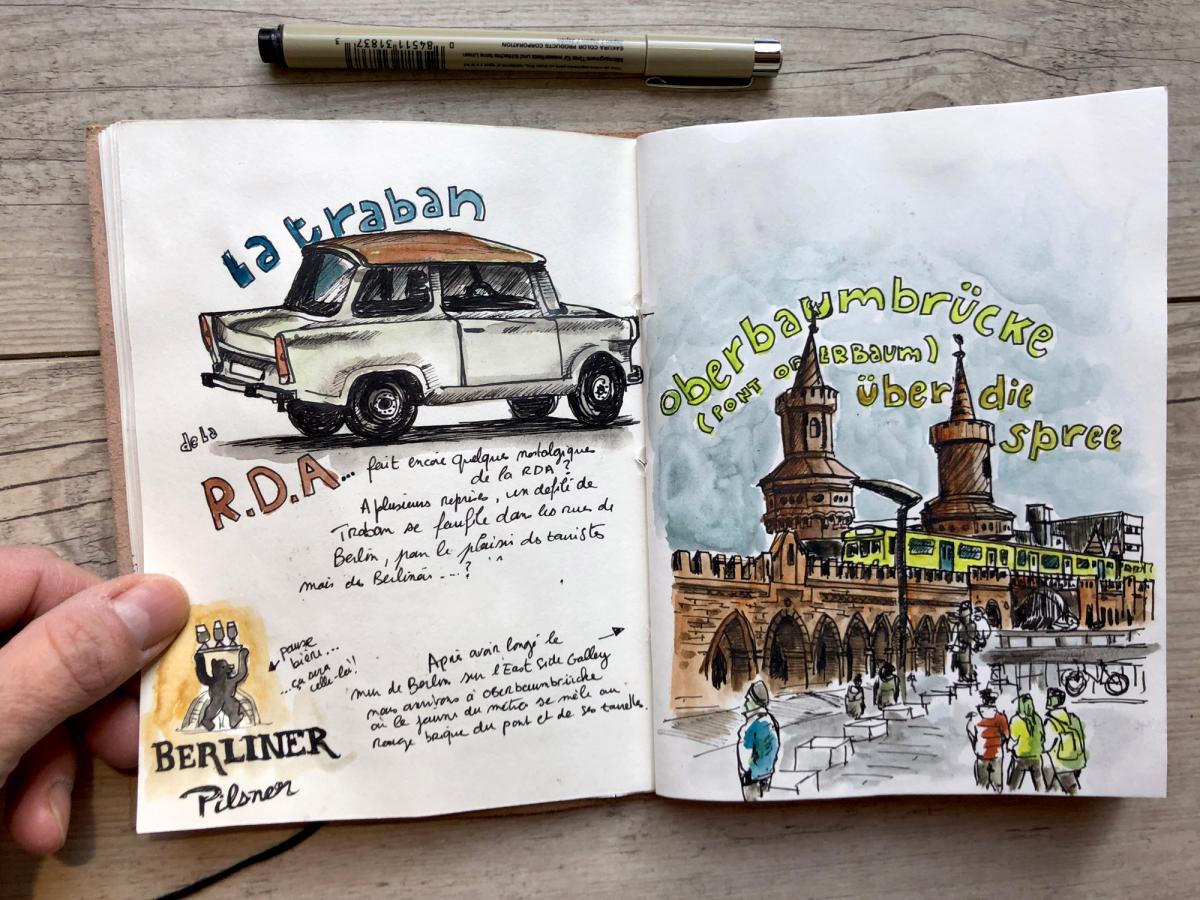 0 84511 31837 3
SAKURA COLOR PRODUCTS CORPORATION
La traban
de la
R.D.A... fait encore quelques nostalgiques
de la RDA ?
A plusieurs reprises, un défilé de
Traban se faufile dans les rues de
Berlin, pour le plaisir des touristes
mais des Berlinois ---- ?
pause
bière...
...ça sera
celle-là !
BERLINER
Pilsner
Après avoir longé le
mur de Berlin sur l'East Side Gallery
nous arrivons à oberbaumbrücke
où le jaune du métro se mêle au
rouge brique du pont et de ses tourelles.
oberbaumbrücke
(PONT OBERBAUM)
über die
spree